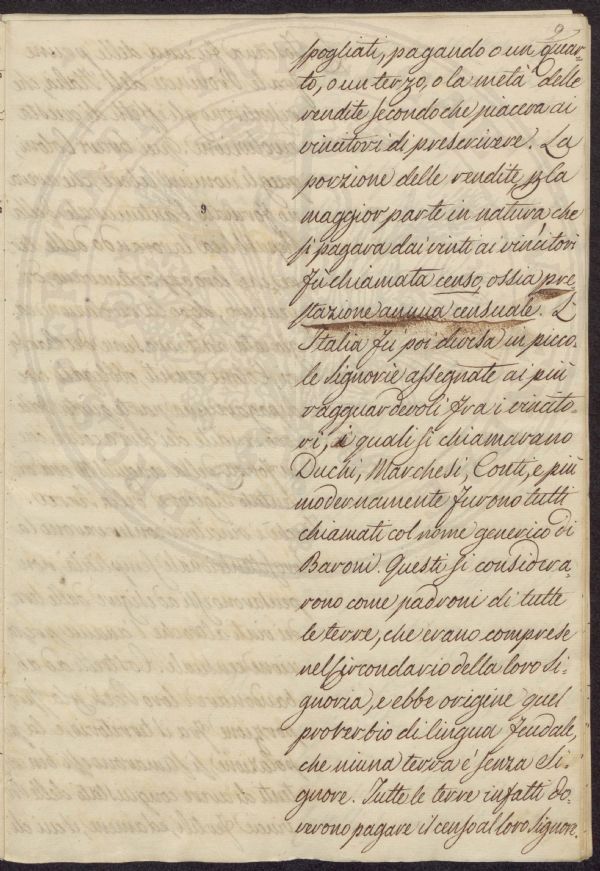 9
spogliati, pagando o un quar-
to, o un terzo, o la metà delle
rendite secondo che piaceva ai
vincitori di prescrivere. La
porzione delle rendite p la
maggior parte in natura che
si pagava dai vinti ai vincitori
fù chiamata censo, ossia pre
stazione annua censuale. L
Italia fu poi divisa in picco-
le signorie assegnate ai più
ragguardevoli fra i vincito-
ri, i quali si chiamavano
Duchi, Marchesi, Conti, e più
modernamente furono tutti
chiamati col nome generico di
Baroni. Questi si considera-
rono come padroni di tutte
le terre, che erano comprese
nel Circondario della loro si-
gnoria, e ebbe origine quel
proverbio di lingua feudale,
che niuna terra è senza il Si-
gnore. Tutte le terre infatti do-
verono pagare il censo al loro Signore.